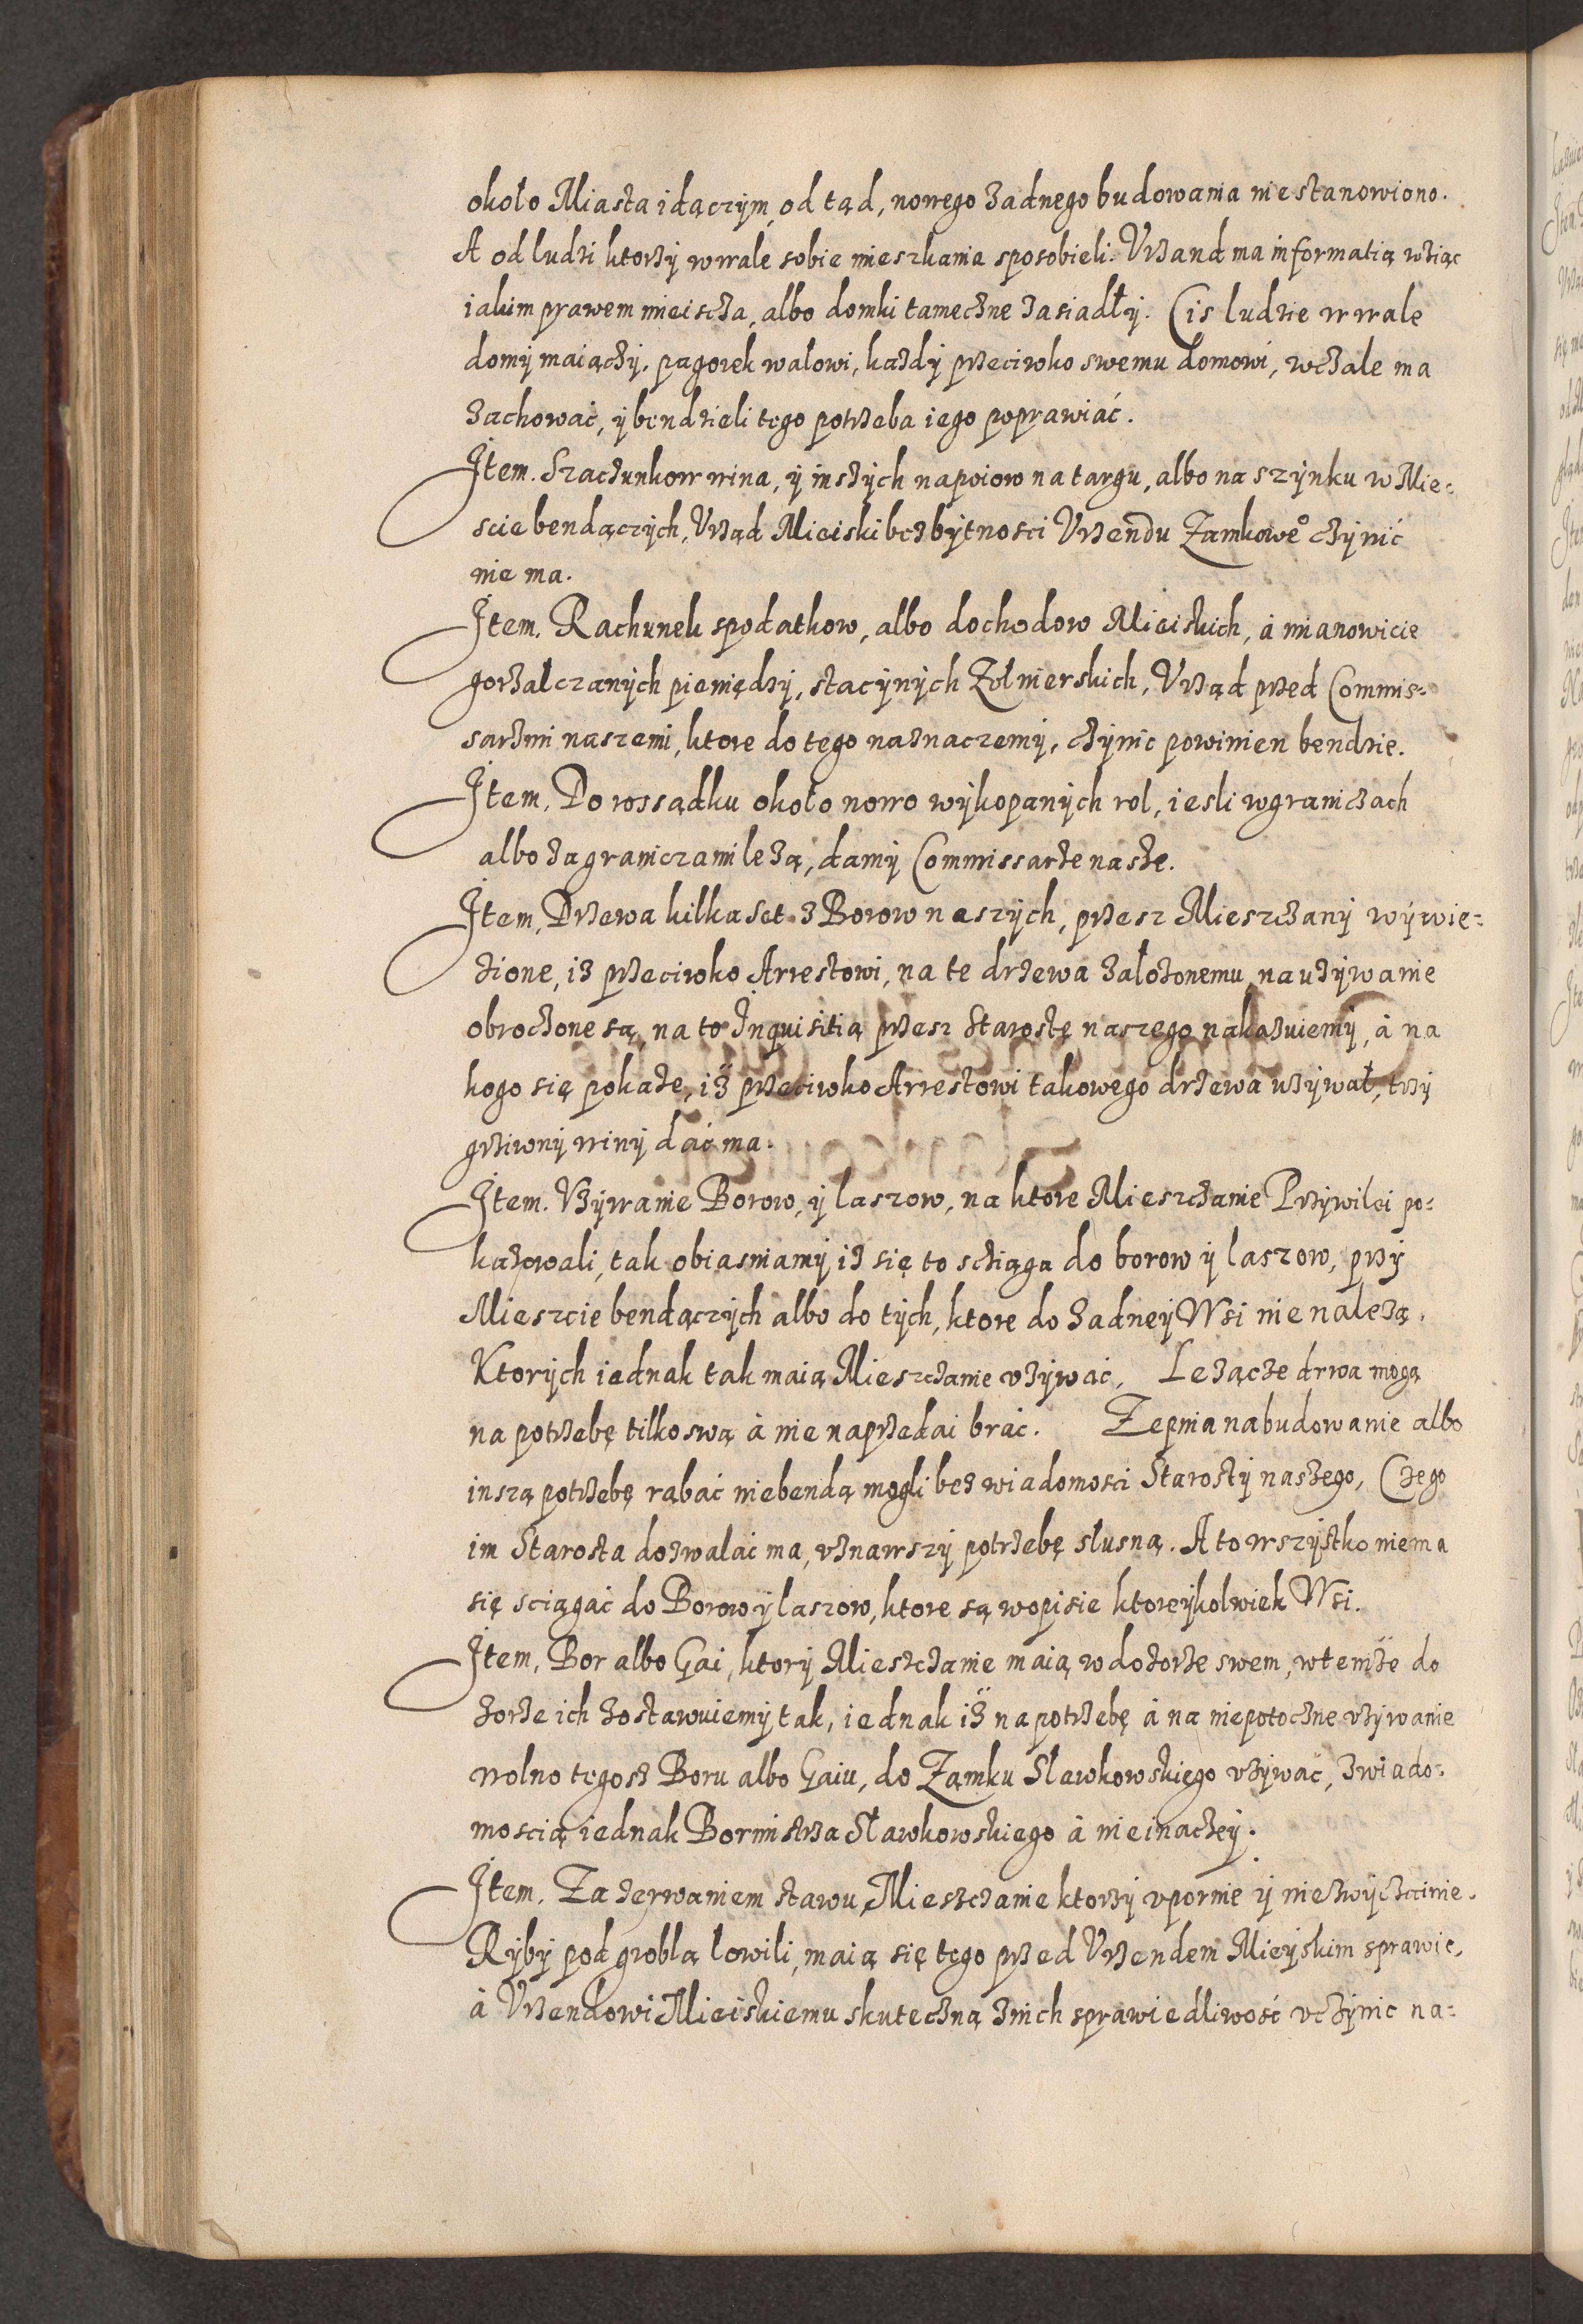 około Miasta idączÿm, od tąd, nowego zadnego budowania nie stanowiono.
A od ludzi ktorzÿ wwale sobie mieszkania sposobieli. Vrzand ma informatią wziąc
iakim prawem mieiscza, albo domki tameczne zasiadłÿ. Cis ludzie wwale
domÿ maiączÿ, pagorek wałowi, kazdÿ przeciwko swemu domowi, wczale ma
zachować, ÿ bendzieli tego potrzeba iego poprawiáć.
Jtem. Szaczunkow wina, ÿ inszÿch napoiow na targu, albo na szÿnku w Mie-
scie bendączÿch, Vrząd Mieiski bez bÿtnosci Vrzendu Zamkowe° czÿnić
nie ma.
Jtem. Rachunek spodatkow, albo dochodow Mieiskich, á mianowicie
gorzałczanÿch pieniędzÿ, stacÿnÿch Zołnierskich, Vrząd przed Commis-
sarzmi naszemi, ktore do tego naznaczemÿ, czÿnic powinien bendzie.
Jtem. Do rossądku około nowo wÿkopanÿch rol, iesli wgraniczach
albo za graniczami lezą, damÿ Commissarze nasze.
Jtem, Drzewa kilka set z Borow naszÿch, przesz Mieszczanÿ wÿwie-
zione, iz przeciwko Arrestowi, na te drzewa założonemu, na uzÿwanie
obroczone są, na to Jnquisitią przesz Starostę naszego nakazuiemÿ, á na
kogo się pokaże, iż przeciwko Arrestowi takowego drzewa uzÿwał, trzÿ
grziwnÿ winÿ dać ma.
Jtem. Vzÿwanie Borow, ÿ laszow, na ktore Mieszczanie Przÿwilei po-
kazowali, tak obiasniamÿ iz się to scziąga do borow ÿ laszow, przÿ
Mieszcie bendączÿch albo do tÿch, ktore do zadneÿ Wsi nie nalezą.
Ktorÿch iednak tak maią Mieszczanie vzÿwać, Lezącze drwa mogą
na potrzebę tilko swą á nie na przedai bráć. Zepnia na budowanie albo
inszą potrzebę rąbać niebendą mogli bez wiadomosci Starostÿ naszego, Czego
im Starosta dozwalać ma, vznawszÿ potrzebę słusną. A to wszÿstko niema
się sciągać do Borow ÿ laszow, ktore są wopisie ktoreÿkolwiek Wsi.
Jtem, Bor albo Gai, ktorÿ Mieszczanie maią w dozorze swem, wtemże do
zorze ich zostawuiemÿ tak, iednak iż na potrzebę á na niepotoczne vzÿwanie
wolno tegosz Boru albo Gaiu, do Zamku Sławkowskiego vzÿwać, zwiado-
moscią iednak Bormistrza Sławkowskiego á nie inaczeÿ.
Jtem. Za zerwaniem stawu, Mieszczanie ktorzÿ vpornie ÿ niezwÿczainie.
Rÿbÿ pod groblą łowili, maią się tego przed Vrzendem Mieÿskim sprawic,
á Vrzendowi Mieiskiemu skuteczną znich sprawiedliwość vczÿnic na-